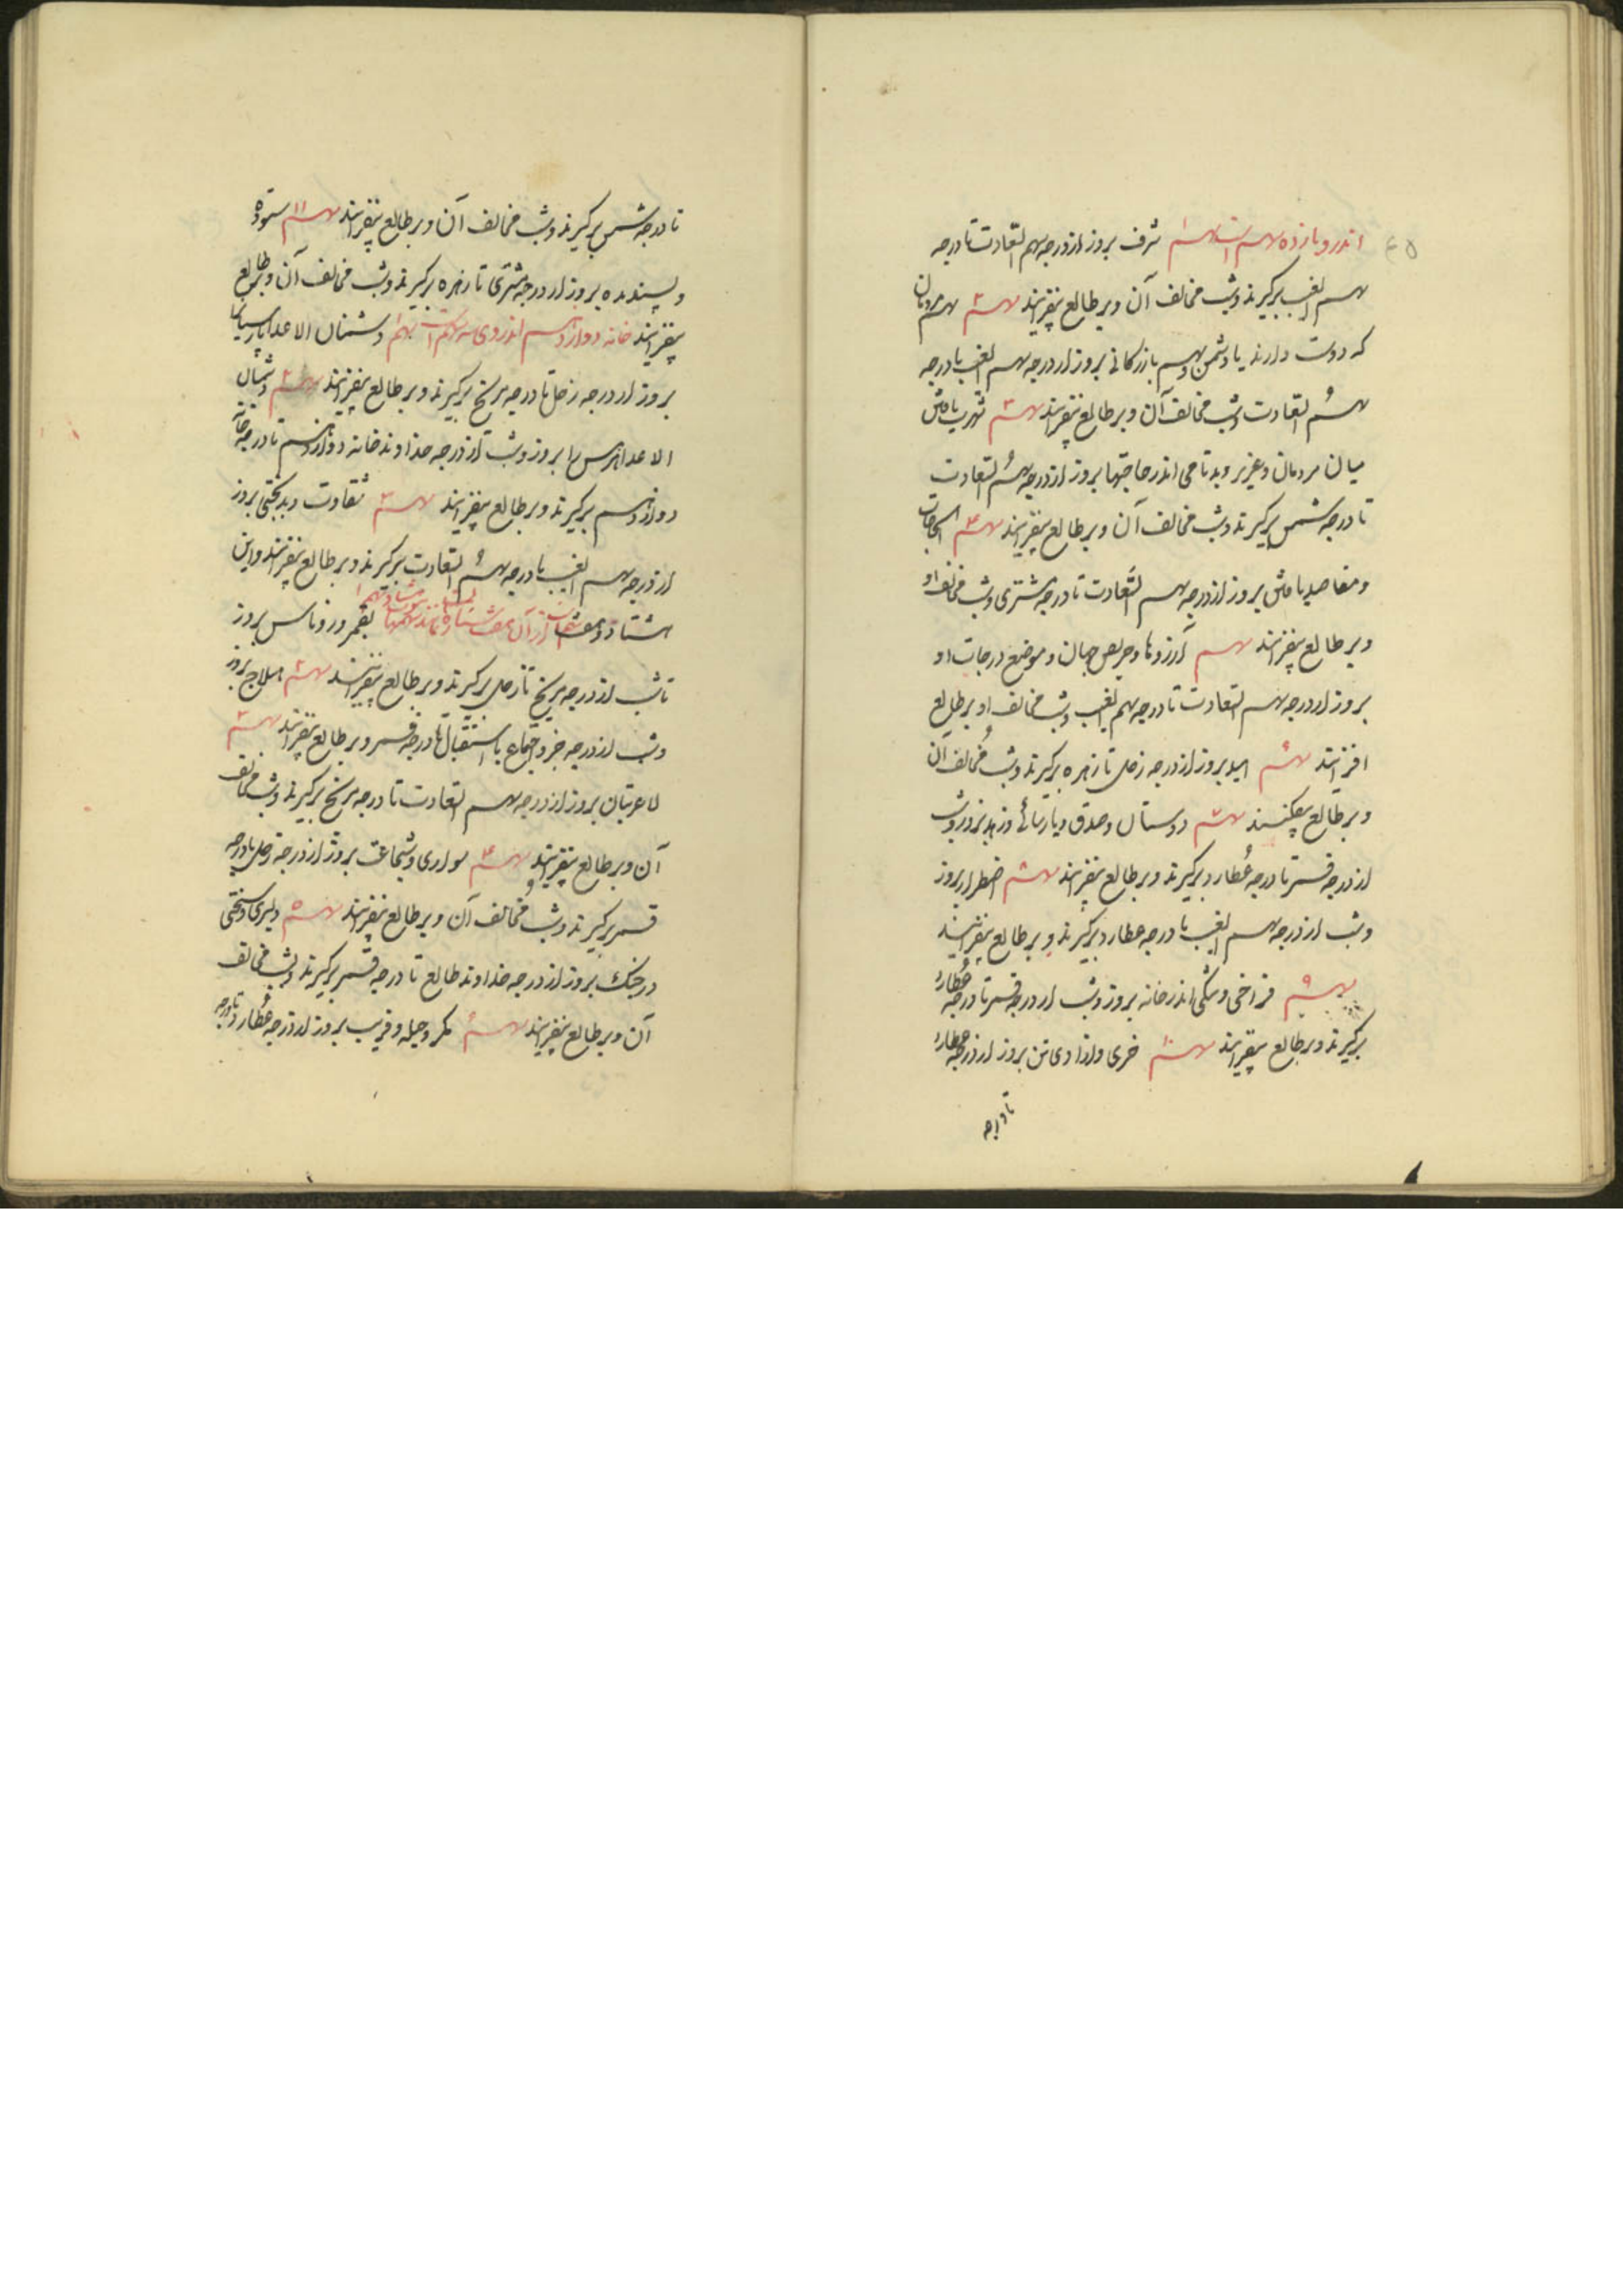 اندرو یازده سهم است سهم ۱ شرف بروز از درجه سهم السعادت تا درجه
سهم الغیب برگیرند و بشب مخالف آن و بر طالع بیفزایند سهم ۲ سهم مردمان
که دوست دارند یا دشمن و سهم بازرگانی بروز از درجه سهم الغیب تا درجه
سهم السعادت و بشب مخالف آن و بر طالع بیفزایند سهم ۳ شهر یافتن
میان مردمان و عزیز و بدنامی اندر حاجتها بروز از درجه سهم السعادت
تا درجه شمس برگیرند و بشب مخالف آن و بر طالع بیفزایند سهم ۴ الحاجات
و مقاصد یافتن بروز از درجه سهم السعادت تا درجه مشتری و بشب مخالف او
و بر طالع بیفزایند سهم آرزوها و حریص جهان و موضع درجات او
بروز از درجه سهم السعادت تا درجه سهم الغیب و بشب مخالف او بر طالع
افزایند سهم ۶ امید بروز از درجه زحل تا زهره برگیرند و بشب مخالف آن
و بر طالع بیفکنند سهم ۷ دوستان و صدق و پارسائی و زهد بروز و شب
از درجه قمر تا درجه عطارد برگیرند و بر طالع بیفزایند سهم ۸ اضطرار بروز
و بشب از درجه سهم الغیب تا درجه عطارد برگیرند و بر طالع بیفزایند
سهم ۹ فراخی و تنگی اندر خانه بروز و بشب از درجه قمر تا درجه عطارد
برگیرند و بر طالع بیفزایند سهم ۱۰ حری و آزادی تن بروز از درجه عطارد
تا درجه
تا درجه شمس برگیرند و بشب مخالف آن و بر طالع بیفزایند سهم ۱۱ ستوده
و پسندیده بروز از درجه مشتری تا زهره برگیرند و بشب مخالف آن و بر طالع
بیفزایند خانه دوازدهم اندروی سه سهم است سهم ۱ دشمنان الاعدا
بروز از درجه زحل تا درجه مریخ برگیرند و بر طالع بیفزایند سهم ۲ دشمنان
الاعدا هرمس را بروز و بشب از درجه خداوند خانه دوازدهم تا درجه خانه
دوازدهم برگیرند و بر طالع بیفزایند سهم ۳ شقاوت و بدبختی بروز
از درجه سهم الغیب تا درجه سهم السعادت برگیرند و بر طالع بیفزایند و این
هشتاد و
تا شب از درجه مریخ تا زحل برگیرند و بر طالع بیفزایند سهم ۲ هیلاج بروز
و شب از درجه جزو اجتماع یا استقبال تا درجه قمر و بر طالع بیفزایند سهم ۳
بروز از درجه سهم السعادت تا درجه مریخ برگیرند و بشب مخالف
آن و بر طالع بیفزایند سهم ۴ سواری و شجاعت بروز از درجه زحل تا درجه
قمر برگیرند و بشب مخالف آن و بر طالع بیفزایند سهم ۵ دلیری و سختی
در جنگ بروز از درجه خداوند طالع تا درجه قمر برگیرند و بشب مخالف
آن و بر طالع بیفزایند سهم ۶ مکر و حیله و فریب بروز از درجه عطارد تا درجه